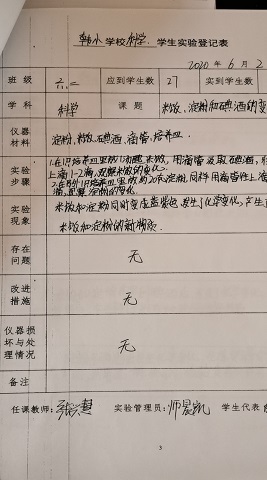 韩小学校科学 学生实验登记表
2020 年 6 月 2
班级 二.二 应到学生数 27 实到学生数
学科 科学 课题 米饭、淀粉和碘酒的变
仪器材料 淀粉、米饭、碘酒、滴管、培养皿.
实验步骤 1.在1只培养皿里 米饭,用滴管吸取碘酒,
上滴1-2滴,观察米饭的变化。
2.在另1只培养皿里 淀粉,同样用滴管往上滴
滴,观察淀粉的变化。
实验现象 米饭和淀粉同时变成蓝紫色,发生了化学变化,产生了
米饭和淀粉的新物质.
存在问题 无
改进措施 无
仪器损坏与处理情况 无
备注
任课教师: 张 慧 实验管理员: 师晨 学生代表
3